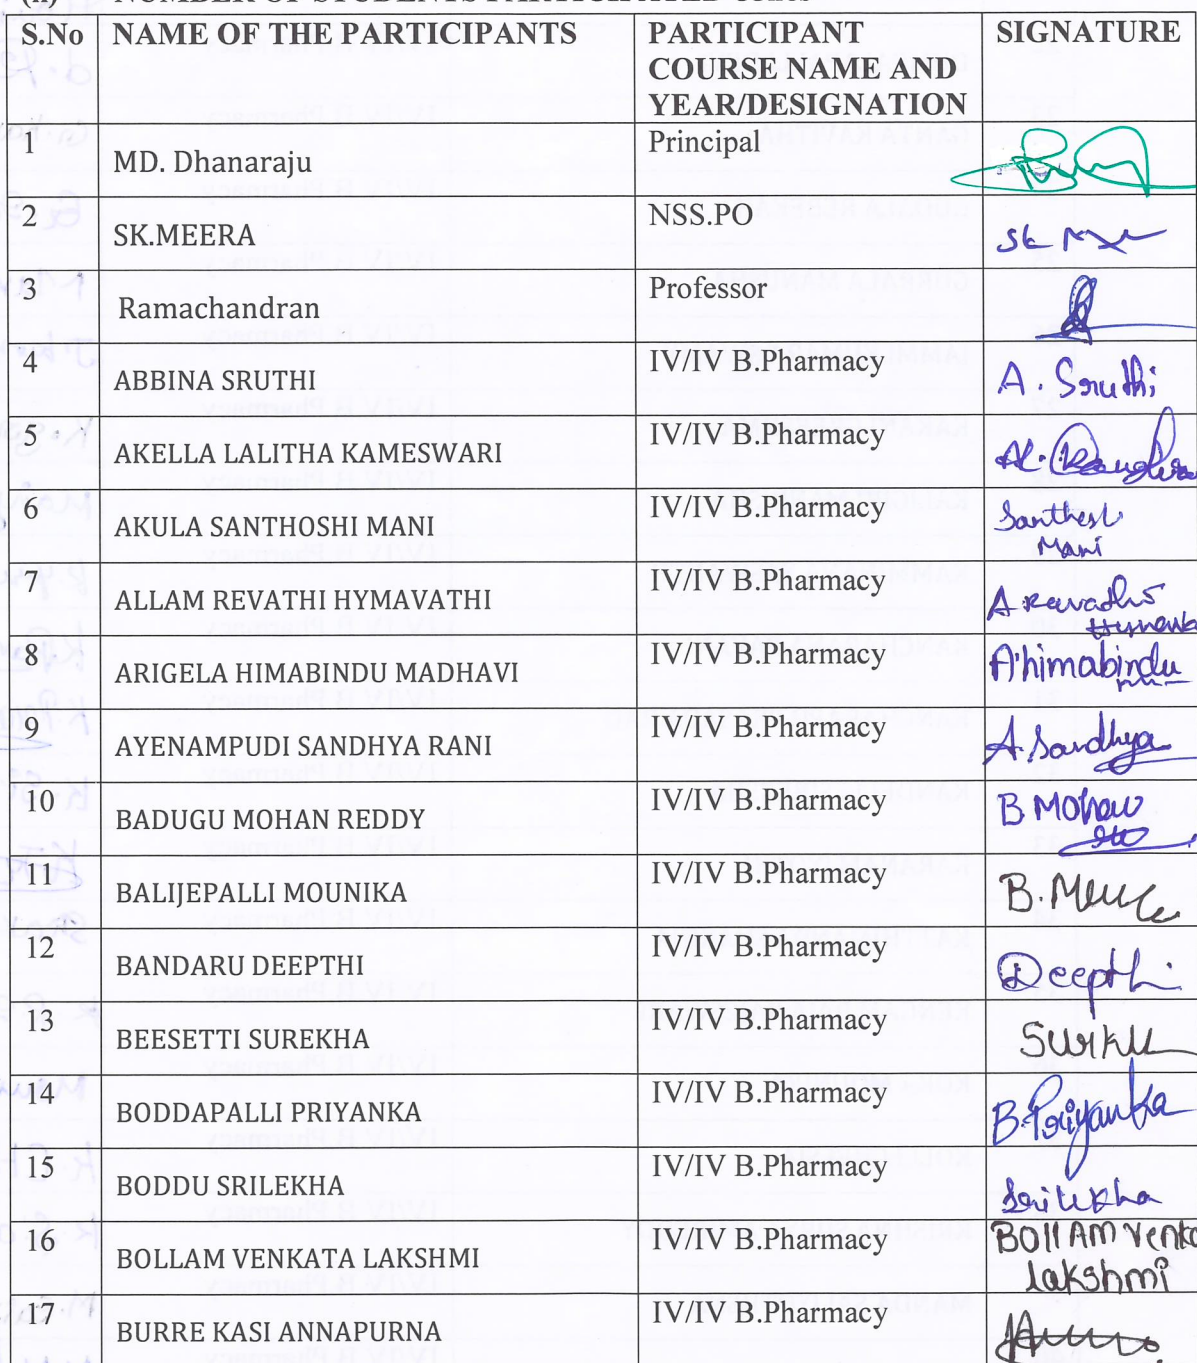 NUMBER OF STUDENTS PARTICIPATED
S.No NAME OF THE PARTICIPANTS PARTICIPANT COURSE NAME AND YEAR/DESIGNATION SIGNATURE
1 MD. Dhanaraju Principal
2 SK.MEERA NSS.PO SK
3 Ramachandran Professor
4 ABBINA SRUTHI IV/IV B.Pharmacy A. Sruthi
5 AKELLA LALITHA KAMESWARI IV/IV B.Pharmacy
6 AKULA SANTHOSHI MANI IV/IV B.Pharmacy Santhosh Mani
7 ALLAM REVATHI HYMAVATHI IV/IV B.Pharmacy
8 ARIGELA HIMABINDU MADHAVI IV/IV B.Pharmacy A'himabindu
9 AYENAMPUDI SANDHYA RANI IV/IV B.Pharmacy A. Sandhya
10 BADUGU MOHAN REDDY IV/IV B.Pharmacy B Mohan
11 BALIJEPALLI MOUNIKA IV/IV B.Pharmacy
12 BANDARU DEEPTHI IV/IV B.Pharmacy Deepthi
13 BEESETTI SUREKHA IV/IV B.Pharmacy
14 BODDAPALLI PRIYANKA IV/IV B.Pharmacy B. Priyanka
15 BODDU SRILEKHA IV/IV B.Pharmacy Srilekha
16 BOLLAM VENKATA LAKSHMI IV/IV B.Pharmacy BOllAM Venka lakshmi
17 BURRE KASI ANNAPURNA IV/IV B.Pharmacy